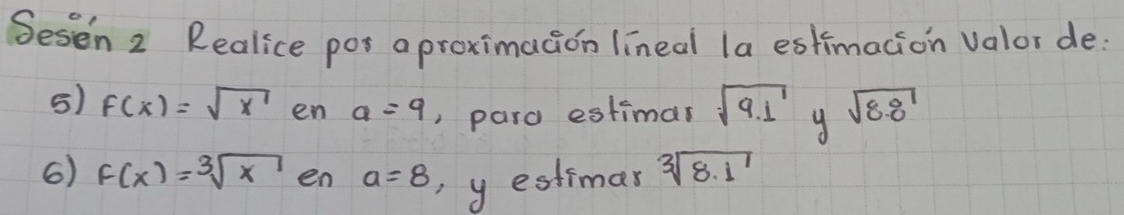 Sesión 2 Realice por aproximación lineal la estimación valor de:
5) F(x) = √x en a = 9, para estimar √9.1 y √8.8
6) F(x) = ∛x en a = 8, y estimar ∛8.1